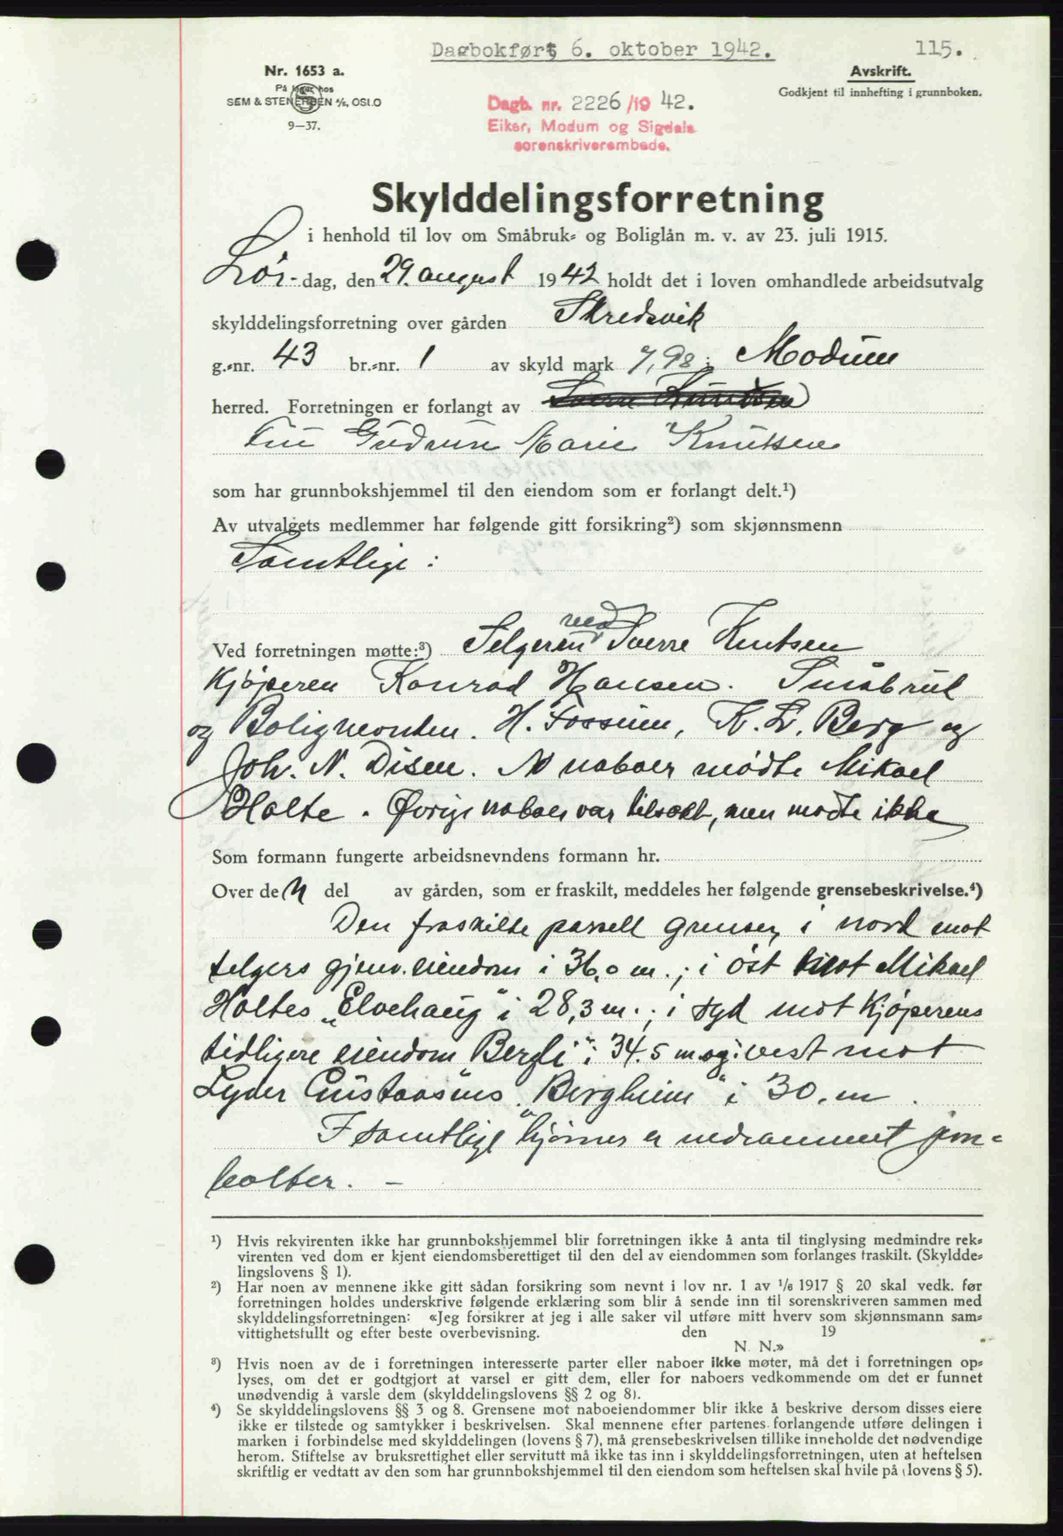 Dagbokført 6. oktober 1942.
115.
Nr. 1653 a.
På lager hos
SEM & STENERSEN A/S, OSLO
9—37.
Dagb. nr. 2226/1942.
Eiker, Modum og Sigdals
sorenskriverembede.
Avskrift.
Godkjent til innhefting i grunnboken.
Skylddelingsforretning
i henhold til lov om Småbruk- og Boliglån m. v. av 23. juli 1915.
Lør-dag, den 29. august 1942 holdt det i loven omhandlede arbeidsutvalg
skylddelingsforretning over gården Skredsvik
g.-nr. 43 br.-nr. 1 av skyld mark 7,98 i Modum
herred. Forretningen er forlangt av Sverre Knutsen
Fru Gudrun Marie Knutsen
som har grunnbokshjemmel til den eiendom som er forlangt delt.¹)
Av utvalgets medlemmer har følgende gitt forsikring²) som skjønnsmenn
Samtlige :
Ved forretningen møtte:³) Selgeren ved Sverre Knutsen
Kjøperen Konrad Hansen. Småbruk
og Boligmonden. H. Fossum, K. L. Berg og
Joh. N. Disen. Av naboer mødte Mikael
Holte. Øvrige naboer var tilsagt, men mødte ikke
Som formann fungerte arbeidsnevndens formann hr.
Over den del av gården, som er fraskilt, meddeles her følgende grensebeskrivelse.⁴)
Den fraskilte parsell grenser i nord mot
selgers gjenv. eiendom i 36,0 m. ; i øst mot Mikael
Holtes "Elvehaug" i 28,3 m. ; i syd mot Kjøperens
tidligere eiendom "Bergli" i 34.5 m og i vest mot
Lyder Gustavsens "Bergheim" i 30. m.
I samtlige hjørner er nedrammet jern-
bolter. —
¹) Hvis rekvirenten ikke har grunnbokshjemmel blir forretningen ikke å anta til tinglysing medmindre rek-
virenten ved dom er kjent eiendomsberettiget til den del av eiendommen som forlanges fraskilt. (Skyldde-
lingslovens § 1).
²) Har noen av mennene ikke gitt sådan forsikring som nevnt i lov nr. 1 av 1/6 1917 § 20 skal vedk. før
forretningen holdes underskrive følgende erklæring som blir å sende inn til sorenskriveren sammen med
skylddelingsforretningen: «Jeg forsikrer at jeg i alle saker vil utføre mitt hverv som skjønnsmann sam-
vittighetsfullt og efter beste overbevisning. den 19
N. N.»
³) Hvis noen av de i forretningen interesserte parter eller naboer ikke møter, må det i forretningen op-
lyses, om det er godtgjort at varsel er gitt dem, eller for naboers vedkommende om det er funnet
unødvendig å varsle dem (skylddelingslovens §§ 2 og 8).
⁴) Se skylddelingslovens §§ 3 og 8. Grensene mot naboeiendommer blir ikke å beskrive dersom disses eiere
ikke er tilstede og samtykker i beskrivelsen. Skal mennene efter partenes forlangende utføre delingen i
marken i forbindelse med skylddelingen (lovens § 7), må grensebeskrivelsen tillike inneholde det nødvendige
herom. Stiftelse av bruksrettighet eller servitutt må ikke tas inn i skylddelingsforretningen, uten at heftelsen
skriftlig er vedtatt av den som har grunnbokshjemmel til den eiendom som heftelsen skal hvile på (lovens § 5).